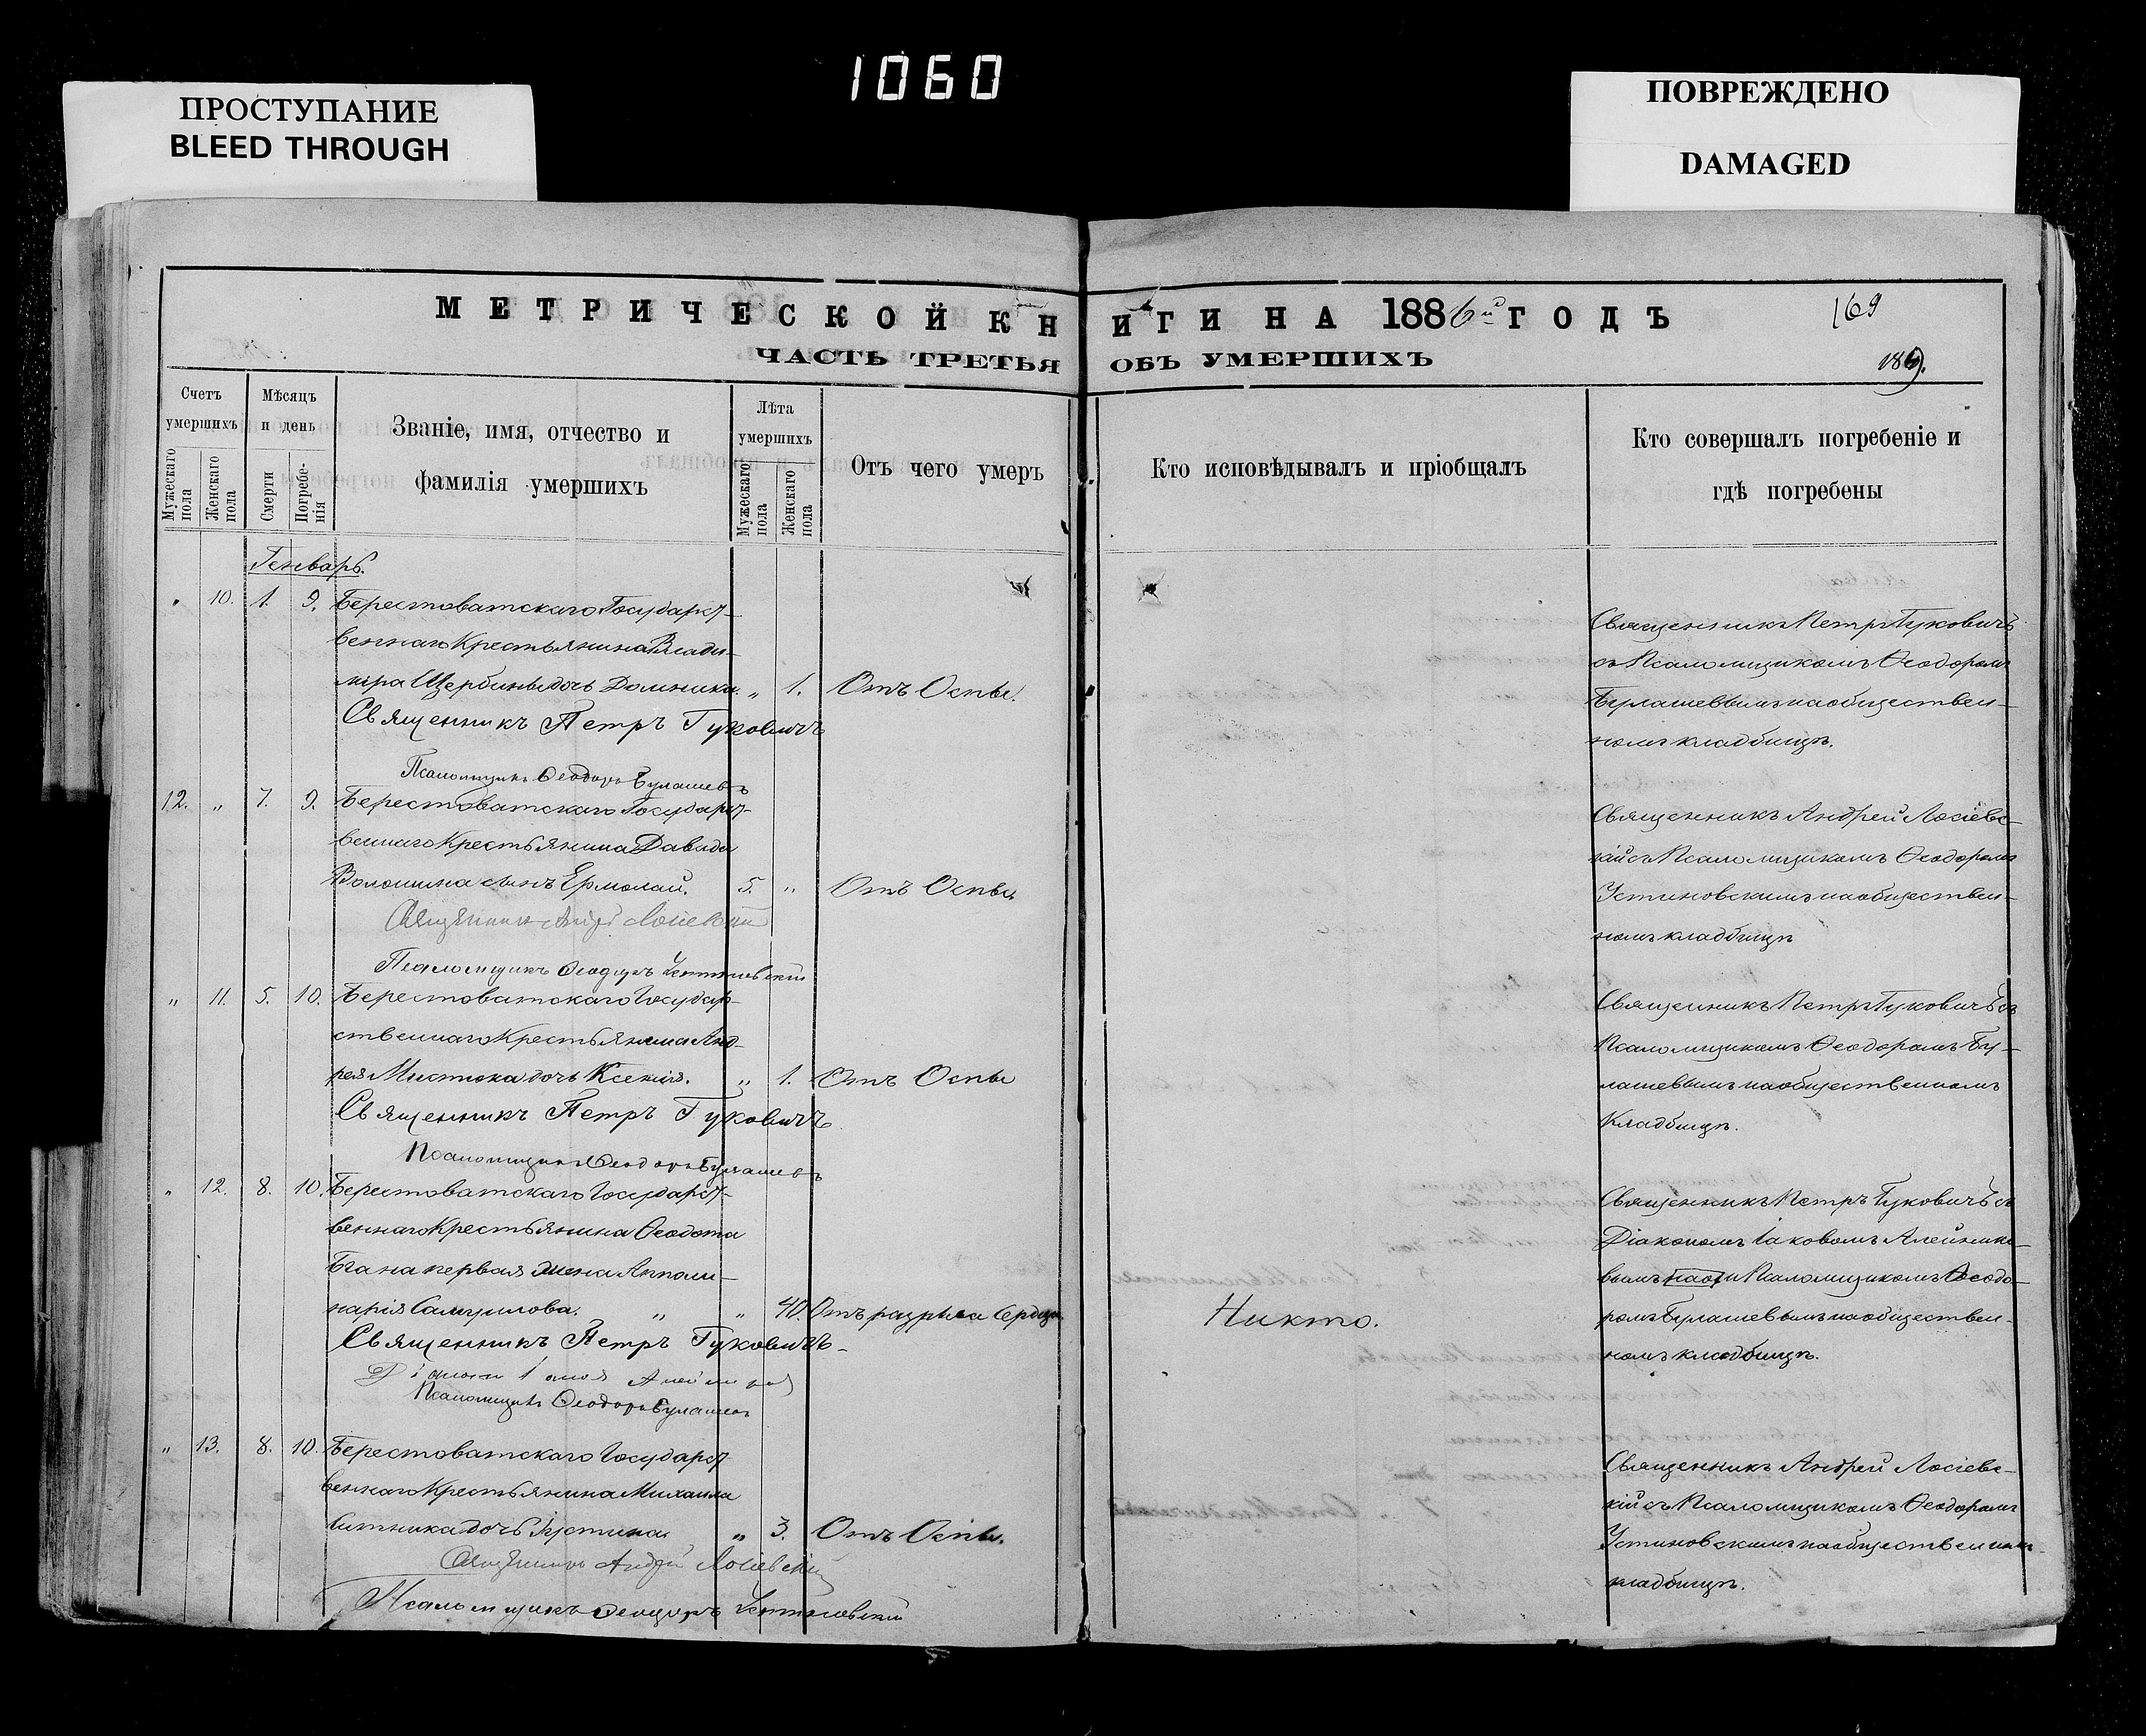 1060
ПРОСТУПАНИЕ
BLEED THROUGH
ПОВРЕЖДЕНО
DAMAGED
МЕТРИЧЕСКОЙ КНИГИ НА 1886й ГОДЪ
169
ЧАСТЬ ТРЕТЬЯ ОБЪ УМЕРШИХЪ
169.
Счетъ умершихъ
Мужескаго пола
Женскаго пола
Мѣсяцъ и день
Смерти
Погребе-
нія
Званіе, имя, отчество и
фамилія умершихъ
Лѣта умершихъ
Мужескаго пола
Женскаго пола
Отъ чего умеръ
Кто исповѣдывалъ и пріобщалъ
Кто совершалъ погребеніе и
гдѣ погребены
Генварь.
" 10. 1. 9. Берестоватскаго Государст-
веннаго Крестьянина Влади-
міра Щербины дочь Домника. " 1. Отъ Оспы.
Священникъ Петръ Гуковичъ
Псаломщикъ Ѳеодоръ Булашевъ
Священникъ Петръ Гуковичъ
съ Псаломщикомъ Ѳеодоромъ
Булашевымъ на обществен-
номъ кладбищѣ.
12. " 7. 9. Берестоватскаго Государст-
веннаго Крестьянина Давида
Волошина сынъ Ермолай. 5. " Отъ Оспы
Священникъ Андрей Лосіевскій
Псаломщикъ Ѳеодоръ Устиновскій
Священникъ Андрей Лосіевс-
кій съ Псаломщикомъ Ѳеодоромъ
Устиновскимъ на обществен-
номъ кладбищѣ
" 11. 5. 10. Берестоватскаго Государ-
ственнаго Крестьянина Анд-
рея дочь Ксенія. " 1. Отъ Оспы
Священникъ Петръ Гуковичъ
Псаломщикъ Ѳеодоръ Булашевъ
Священникъ Петръ Гуковичъ съ
Псаломщикомъ Ѳеодоромъ Бу-
лашевымъ на общественномъ
Кладбищѣ.
" 12. 8. 10. Берестоватскаго Государст-
веннаго Крестьянина Ѳеодота
первая жена Аполи-
нарія Самуилова. " " 40. Отъ разрыва Сердца
Священникъ Петръ Гуковичъ
Псаломщикъ Ѳеодоръ Булашевъ
Никто.
Священникъ Петръ Гуковичъ съ
Діакономъ Іаковомъ Алейнико-
вымъ и Псаломщикомъ Ѳеодо-
ромъ Булашевымъ на обществен-
номъ кладбищѣ.
" 13. 8. 10. Берестоватскаго Государст-
веннаго Крестьянина Михаила
Ситника дочь Іустина " 3. Отъ Оспы.
Священникъ Андрей Лосіевскій
Псаломщикъ Ѳеодоръ Устиновскій
Священникъ Андрей Лосіевс-
кій съ Псаломщикомъ Ѳеодоромъ
Устиновскимъ на общественномъ
кладбищѣ.